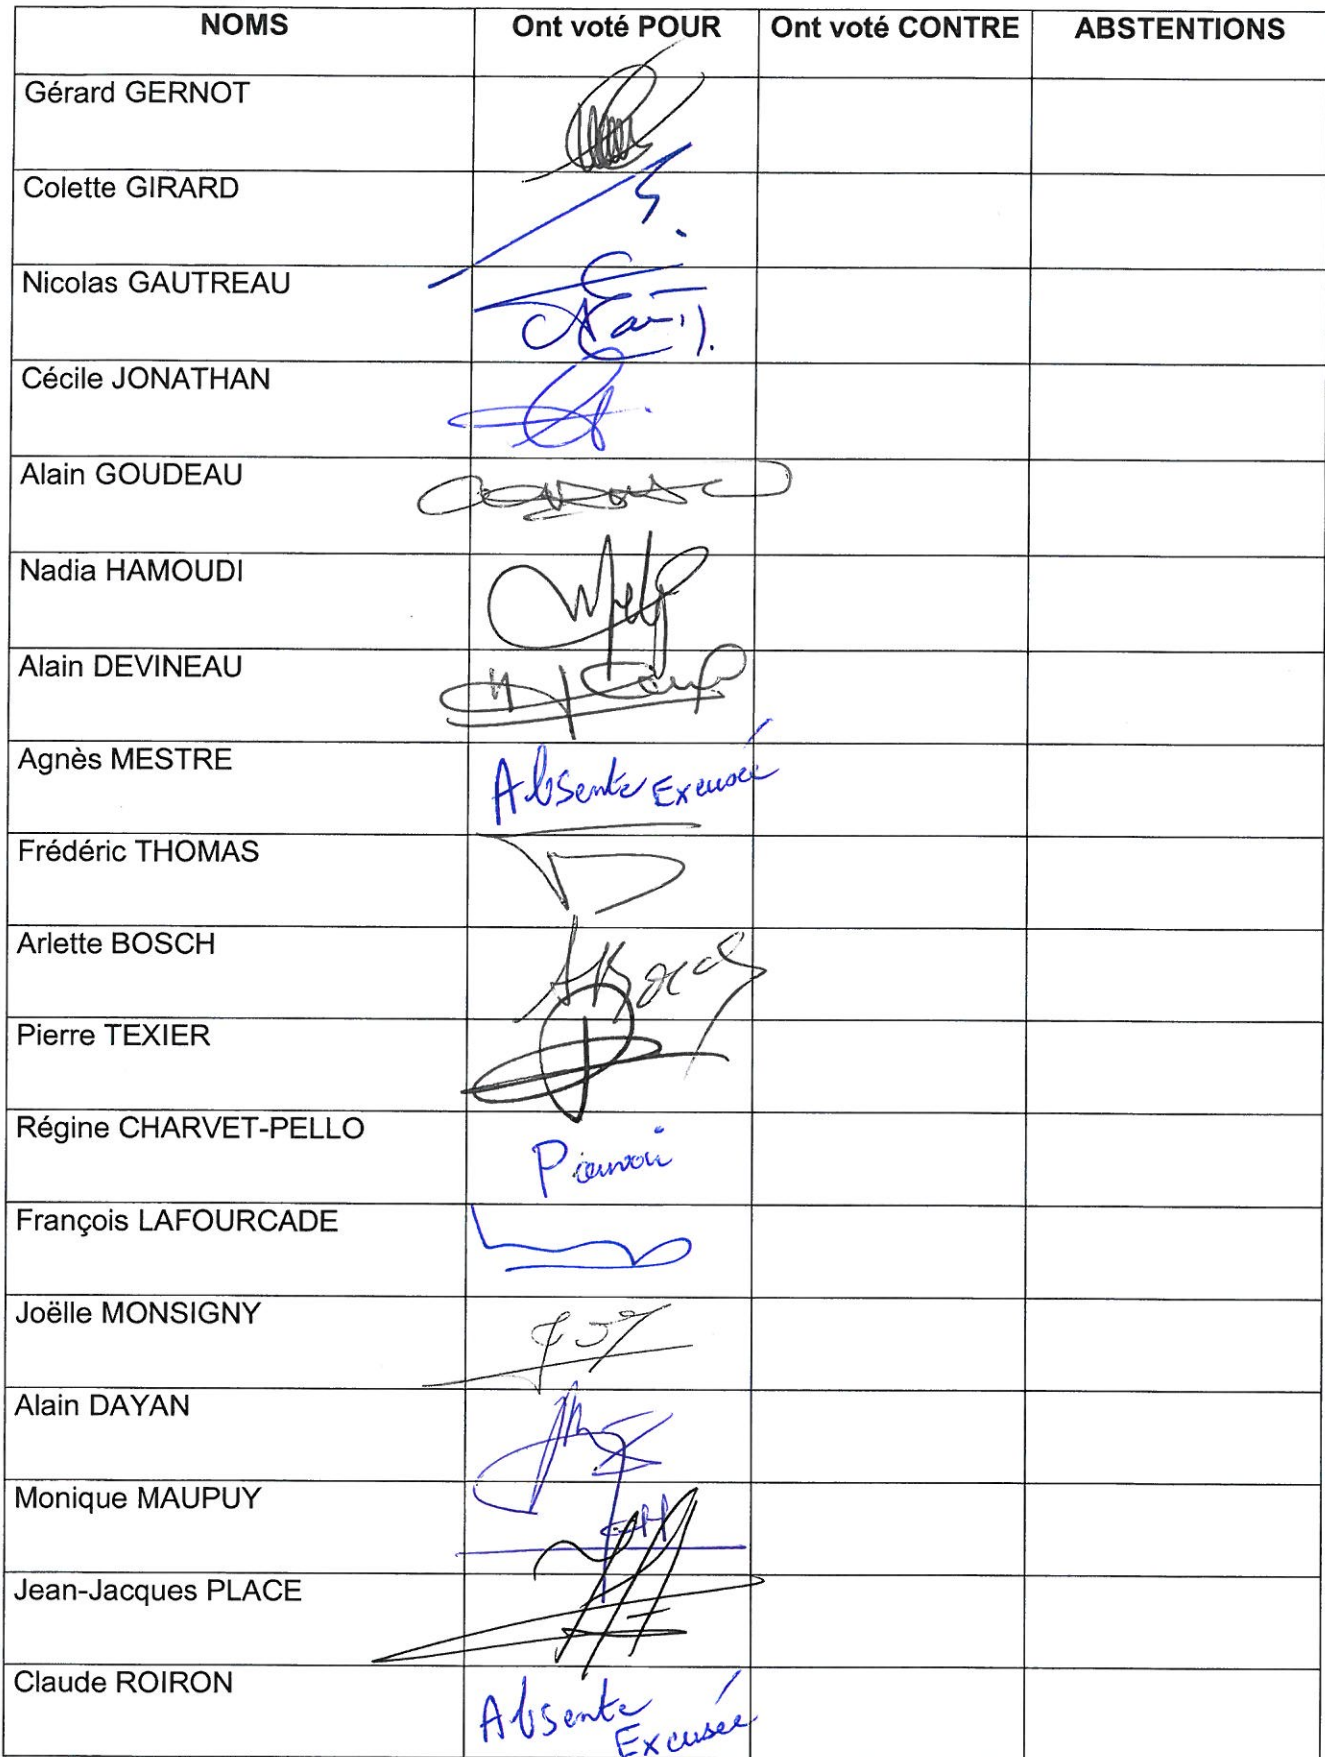 NOMS Ont voté POUR Ont voté CONTRE ABSTENTIONS
Gérard GERNOT
Colette GIRARD
Nicolas GAUTREAU
Cécile JONATHAN
Alain GOUDEAU
Nadia HAMOUDI
Alain DEVINEAU
Agnès MESTRE Absente Excusée
Frédéric THOMAS
Arlette BOSCH ABosch
Pierre TEXIER
Régine CHARVET-PELLO Pouvoir
François LAFOURCADE
Joëlle MONSIGNY
Alain DAYAN
Monique MAUPUY
Jean-Jacques PLACE
Claude ROIRON Absente
Excusée